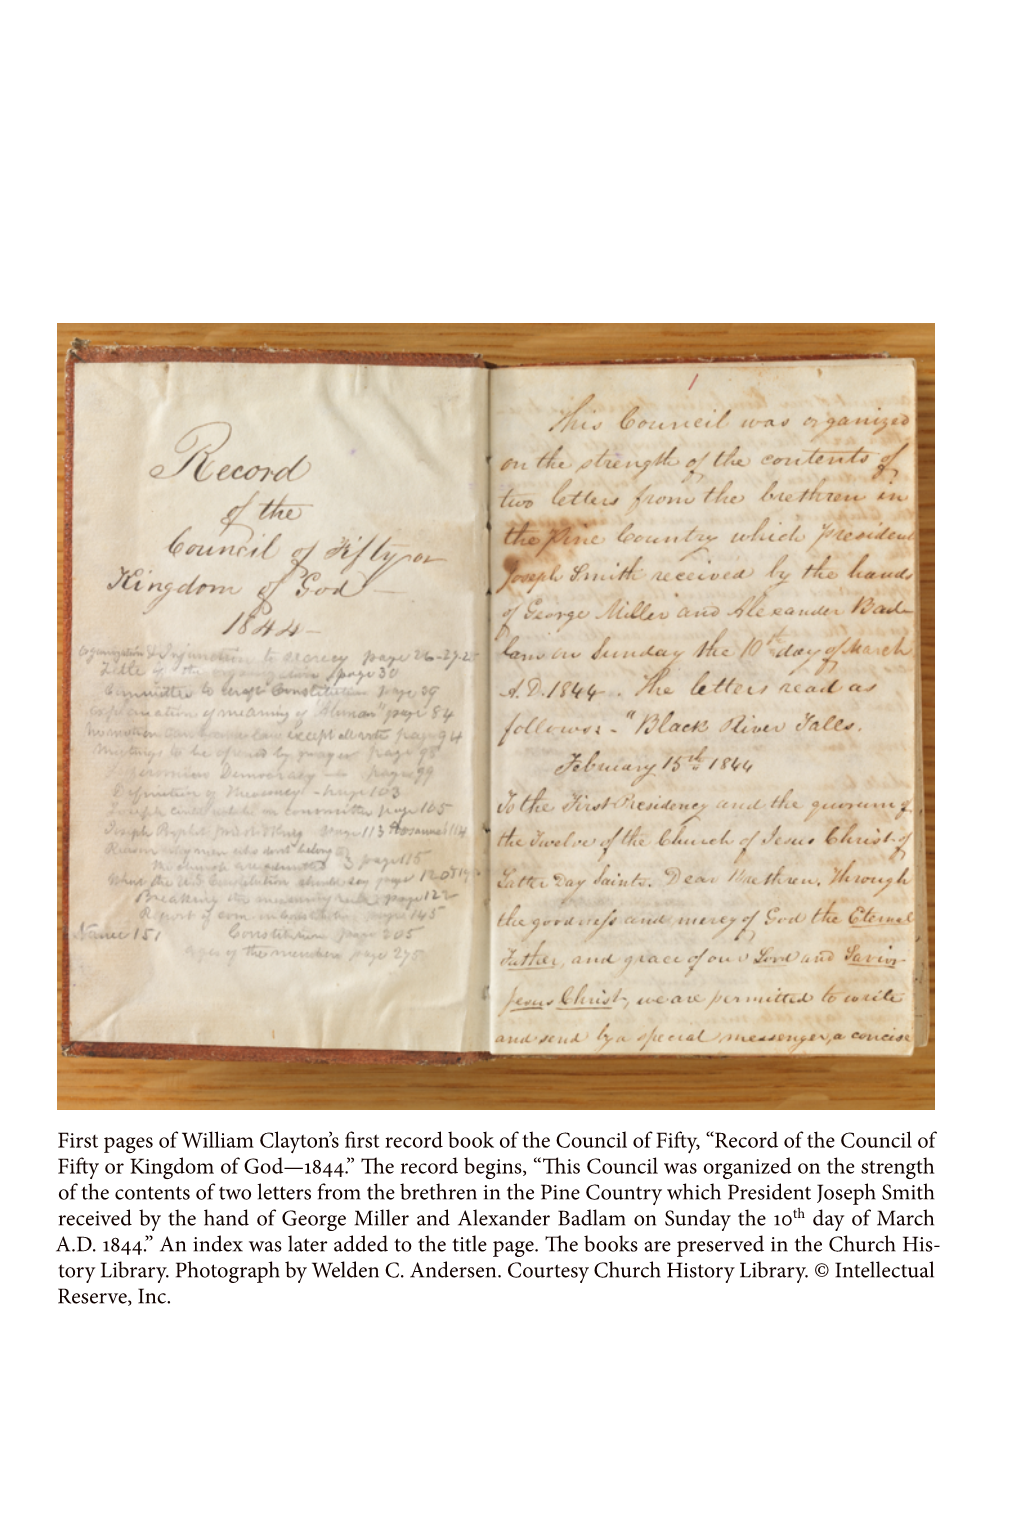 Record
of the
Council of Fifty or
Kingdom of God —
1844 —
Organization & Injunction to secrecy page 26-27-2
Title of the organization page 30
Committee to draft Constitution page 39
Explanation of meaning of "Ahman" page 84
except page 94
Meetings to be opened by prayer page 98
Democracy — page 99
Definition of - page 103
Joseph on committee page 105
Joseph Prophet page 113 Hosanna 114
Reason why men who don't belong
the church are admitted page 115
What the Constitution should say page 120
Breaking the rule page 122
Report of com. on Constitution page 145
Name 151 Constitution page 205
Ages of the members page 275
1
This Council was organized
on the strength of the contents of
two letters from the brethren in
the Pine Country which President
Joseph Smith received by the hands
of George Miller and Alexander Bad-
lam on Sunday the 10th day of March
A.D. 1844. The letters read as
follows:- "Black River Falls.
February 15th 1844
To the First Presidency and the quorum of
the Twelve of the Church of Jesus Christ of
Latter Day Saints. Dear Brethren. Through
the goodness and mercy of God the Eternal
Father, and grace of our Lord and Savior
Jesus Christ, we are permitted to write
and send by a special messenger, a concise
First pages of William Clayton’s first record book of the Council of Fifty, “Record of the Council of
Fifty or Kingdom of God—1844.” The record begins, “This Council was organized on the strength
of the contents of two letters from the brethren in the Pine Country which President Joseph Smith
received by the hand of George Miller and Alexander Badlam on Sunday the 10th day of March
A.D. 1844.” An index was later added to the title page. The books are preserved in the Church His-
tory Library. Photograph by Welden C. Andersen. Courtesy Church History Library. © Intellectual
Reserve, Inc.